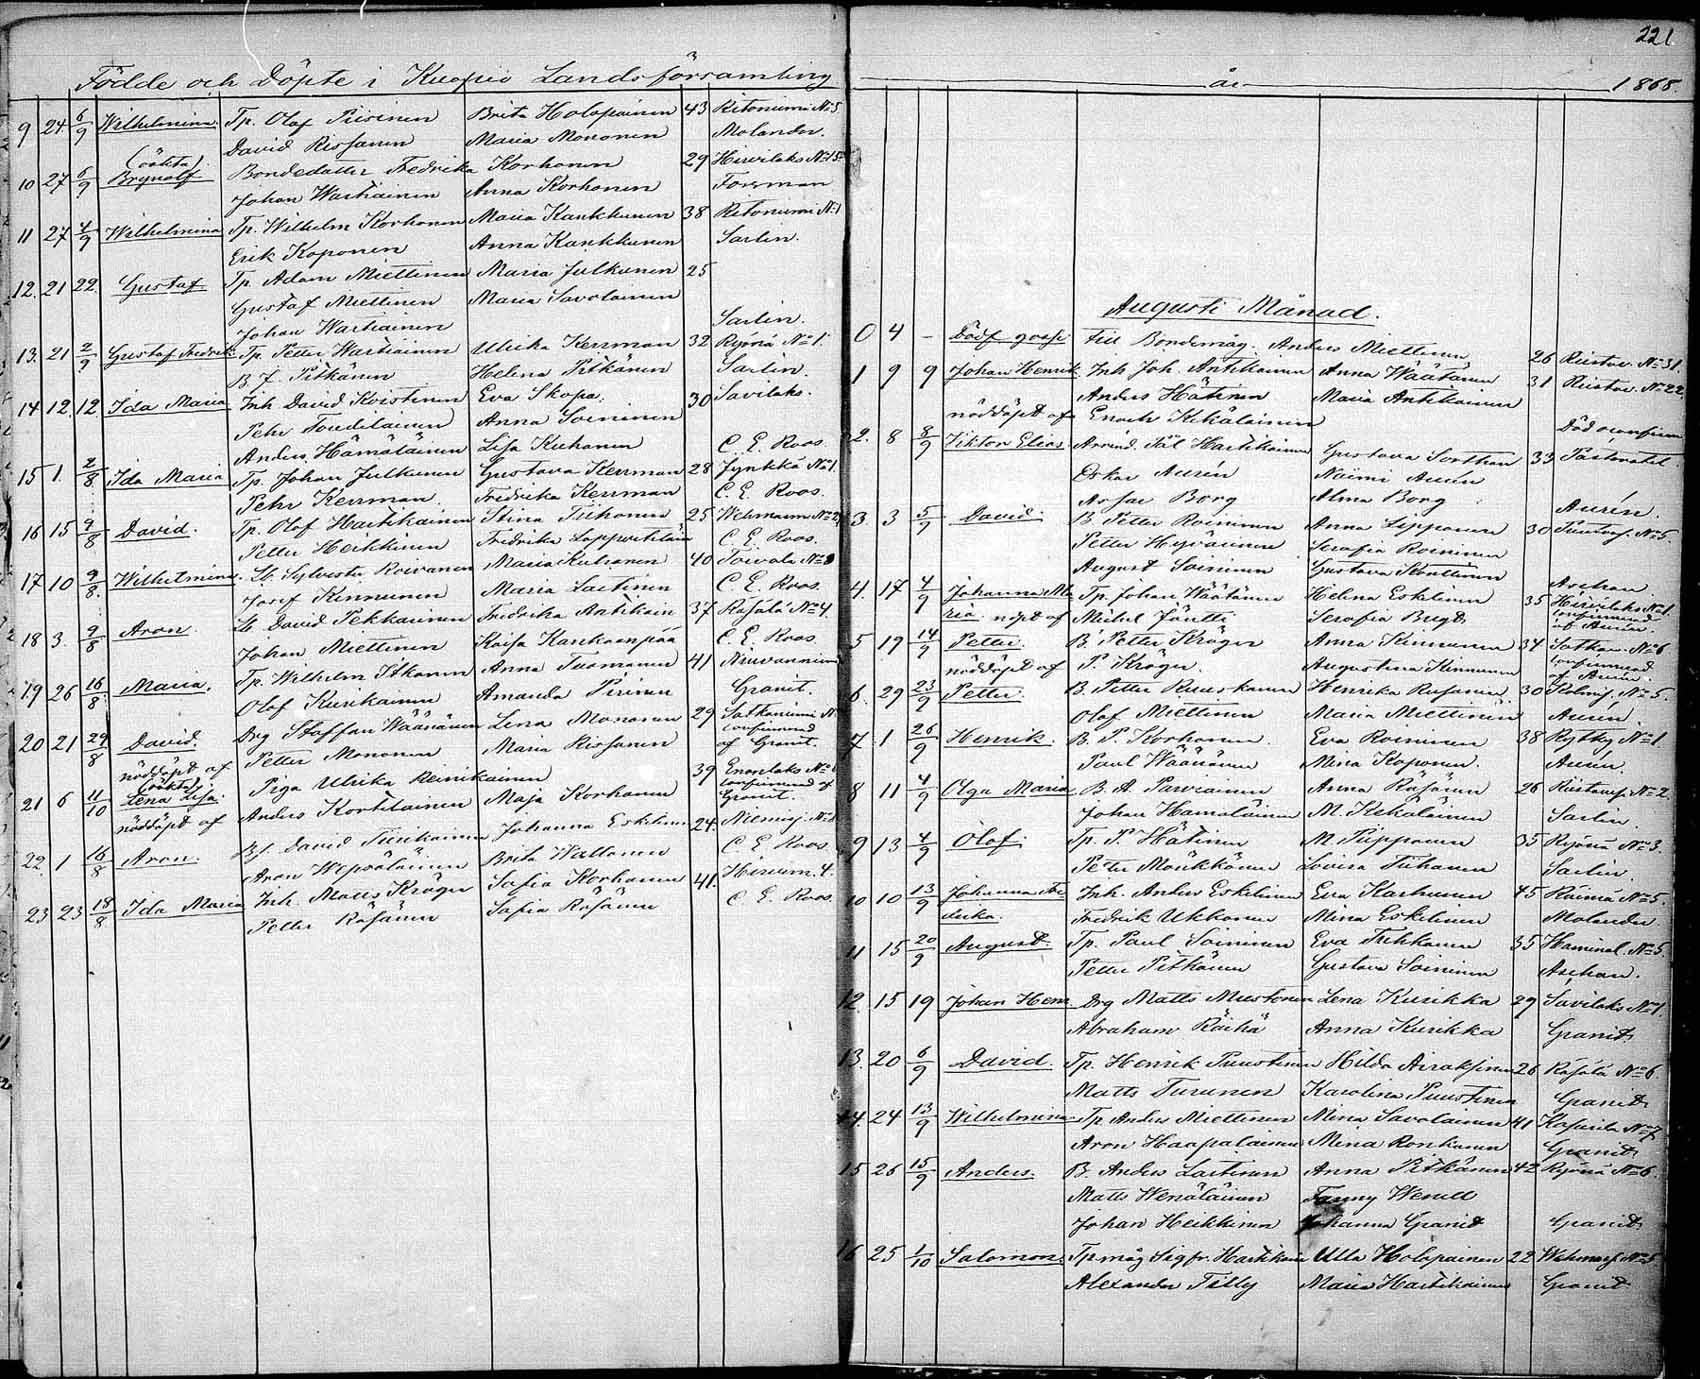 Födde och Döpte i Kuopio Landsförsamling
9 24 6/9 Wilhelmina Tp. Olof Piirinen Brita Holopainen 43 Ritoniemi No 5
David Rissanen Maria Mononen Molander.
(oäkta)
10 27 6/9 Brynolf Bondedotter Fredrika Korhonen 29 Hirvilaks No 15
Johan Wartiainen Anna Korhonen Forsman
11 27 4/9 Wilhelmina Tp. Wilhelm Korhonen Maria Kankkunen 38 Ritoniemi No 1
Erik Koponen Anna Kankkunen Sarlin.
12. 21 22. Gustaf Tp. Adam Miettinen Maria Julkunen 25
Gustaf Miettinen Maria Savolainen
Johan Wartiainen Sarlin.
13. 21 2/9 Gustaf Fredrik Tp. Petter Wartiainen Ulrika Kerrman 32 Ryönä No 1.
B. J. Pitkänen Helena Pitkänen Sarlin.
14 12. 12 Ida Maria Inh David Koistinen Eva Skopa. 30 Savilaks.
Pehr Anna Soininen
Anders Hämäläinen Lisa Kuhanen C. E. Roos.
15 1. 2/8 Ida Maria Tp. Johan Julkunen Gustava Kerrman 28 Jynkkä No 1.
Pehr Kerrman. Fredrika Kerrman C. E. Roos.
16 15 9/8 David. Tp. Olof Hartikainen Stina Tiihonen 25 Wehmasm No 2
Petter Heikkinen Fredrika C. E. Roos.
17 10 9/8. Wilhelmina. Lb. Sylvester Roivanen Maria Kuhanen 40 Toivala No
Josef Kinnunen Maria Laitinen C. E. Roos.
18 3. 9/8 Aron. Lb. David Pekkarinen Fredrika Antikain 37 Räsälä No 4.
Johan Miettinen Kaisa Kankaanpää C. E. Roos.
19 26 16/8. Maria. Tp. Wilhelm Itkonen Anna Tuomainen 41
Olof Kuikainen Amanda Piirinen Granit.
20 21 29/8 David. Drg Staffan Wäänänen Lena Mononen 29 Sotkaniemi No
nöddöpt af Petter Mononen Maria Rissanen confirmerad af Granit.
(oäkta)
21 6 11/10 Lena Lisa. Piga Ulrika Reinikainen 39 Enonlaks No
nöddöpt af Anders Kortelainen Maja Korhonen confirmerad af Granit.
22. 1 16/8 Aron. Bs. David Tiirikainen Johanna Eskelinen 24. Niemisj. No
Aron Brita Wattanen C. E. Roos
23 23 18/8 Ida Maria Inh. Matts Kröger Sofia Korhonen 41. Hirvim. 4.
Petter Räsänen Sofia Räsänen C. E. Roos
221
år 1868.
Augusti Månad.
0 4 – Dödf gosse till Bondemåg. Anders Miettinen 26 Riistav. No 31.
1 9 9 Johan Henrik Inh Joh. Antikainen Anna Wäätänen 31 Riistav. No 22,
Anders Hätinen Maria Antikainen
nöddöpt af Enoch Kekäläinen Död oconfirm
2. 8 8/9 Viktor Elias Arrend. Kål Hartikainen Gustava Sorthan 33 Pastoratet
Oskar Aurén Naimi Aurén
Borg Alma Borg Aurén.
3 3 5/9 David. B. Petter Roininen Anna Lipponen 30 Puutosj. No 5.
Petter Hyvärinen Serafia Roininen
August Soininen Gustava Konttinen Aschan
4. 17 4/9 Johanna Maria nöpt af Tp. Johan Wäätänen Helena Eskelinen 35 Hirvilaks No 1.
Mikel Jäntti Serafia Bugt confirmerad af Aurén.
5 19 14/9 Petter. B. Petter Kröger Anna Kinnunen 34 Sotkan. No 6
nöddöpt af P. Kröger. Augustina Kinnunen confirmerad af Aurén.
6. 29 23/9 Petter. B. Petter Ruuskanen Henrika Rusanen 30 Kolmisj. No 5.
Olof Miettinen Maria Miettinen Aurén
7. 1 26/9 Henrik. B. P. Korhonen Eva Roininen 38 Rytky No 1
Paul Wäänänen Mina Koponen. Aurén.
8 11 4/9 Olga Maria B. A. Parviainen Anna Räsänen 26 Riistavesi No 2.
Johan Hämäläinen M. Kekäläinen Sarlin
9 13 4/9 Olof. Tp. P. Hätinen M Piipponen 35 Ryönä No 3.
Petter Mönkkönen Lovisa Tuhanen Sarlin
10 10 13/9 Johanna Fredrika. Inh. Anders Eskelinen Eva Karhunen 45 Räimä No 5.
Fredrik Ukkonen Mina Eskelinen Molander
11 15 20/9 August. Tp. Paul Soininen Eva Tuhkanen 35 Haminal. No 5.
Petter Pitkänen Gustava Soininen Aschan.
12. 15 19 Johan Henr. Drg Matts Mustonen Lena Kurikka 29 Savilaks No 1.
Abraham Räihä Anna Kurikka Granit
13. 20 6/9 David. Tp. Henrik Puustinen Hilda Airaksinen 26 Räsälä No 6.
Matts Turunen Karolina Puustinen Granit
14. 24 13/9 Wilhelmina Tp Anders Miettinen Mina Savolainen 41 Kasurila No 7
Aron Haapalainen Mina Ronkanen Granit
15 26 15/9 Anders. B. Anders Laitinen Anna Pitkänen 42 Ryönä No 6.
Matts Wenäläinen Fanny Wenell
Johan Heikkinen Johanna Granit Granit
16 25 1/10 Salomon. Tp måg Sigfr. Hartikain Ulla Holopainen 22 Wehmasj No 5
Alexander Tilly Maria Hartikainen Granit